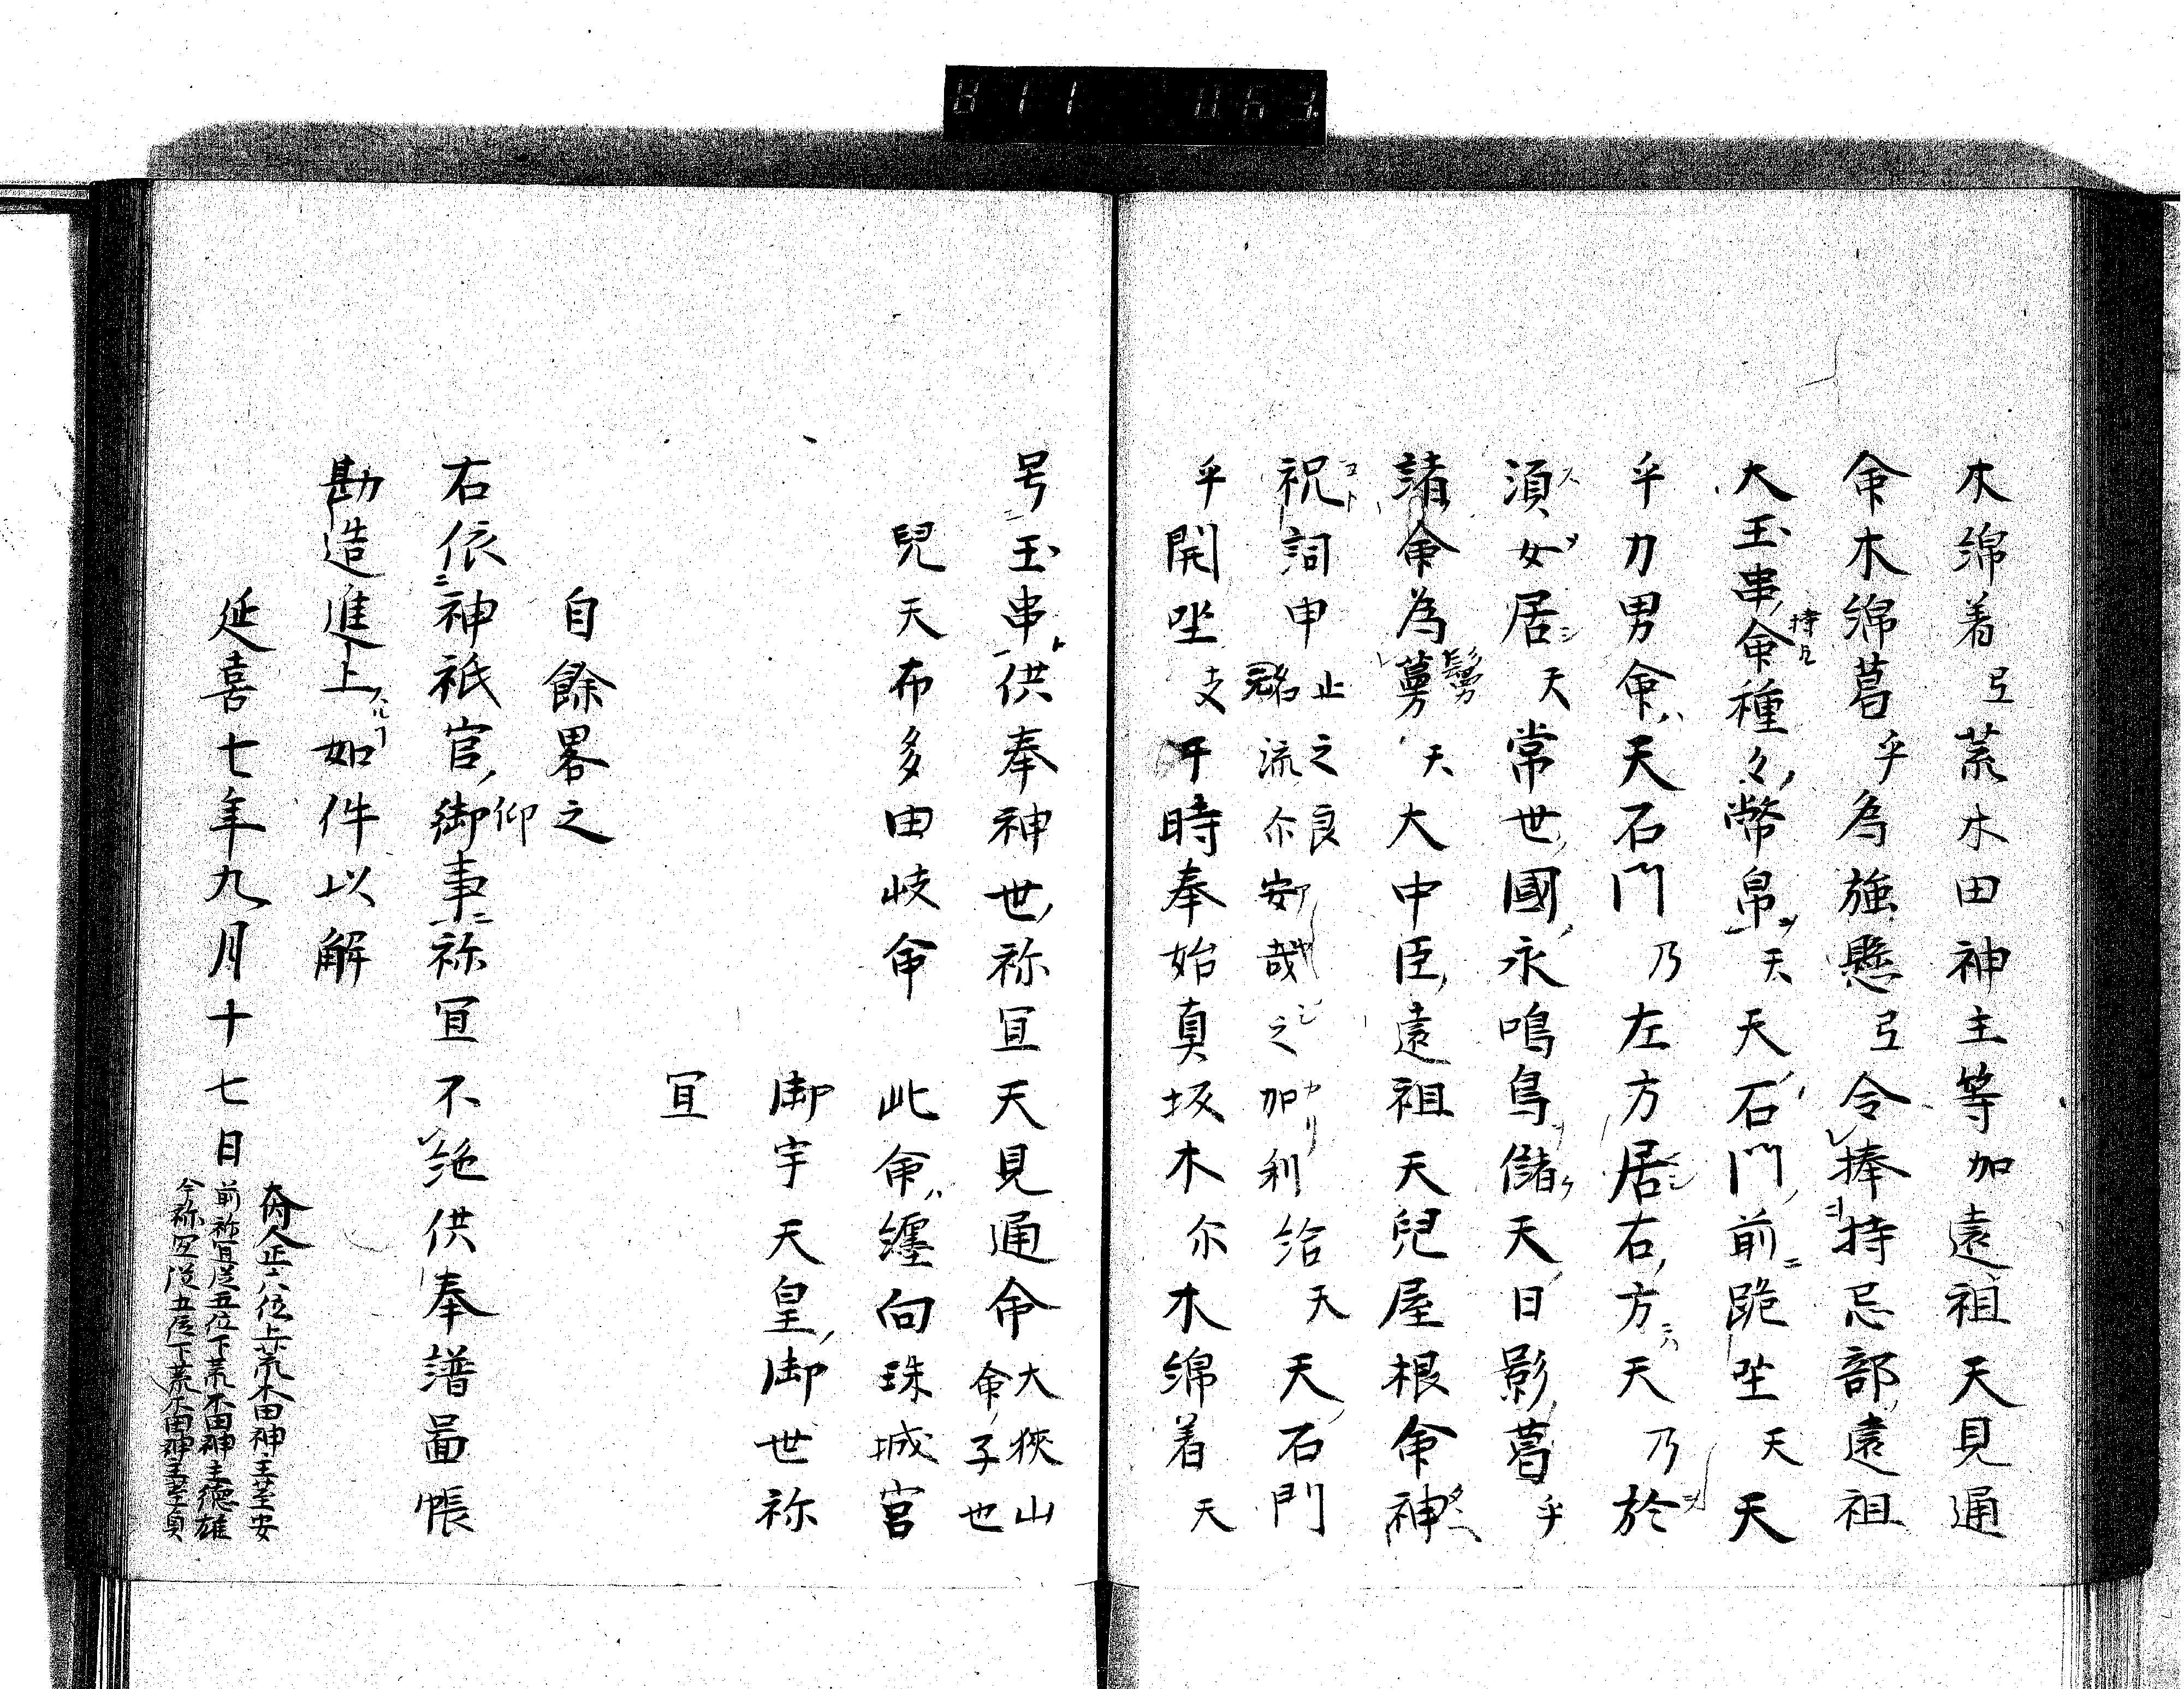 木綿着弖荒木田神主等加遠祖天見通
命木綿葛乎為強懸弖令捧持忌部遠祖
大玉串命種々幣帛天天石門前跪坐天天
乎力男命天石門乃左方居右方天乃於
須女居天常世國永鳴鳥儲天日影葛乎
諸命為鬘天大中臣遠祖天兒屋根命神
祝詞申止之良流尒安哉之加利給天天石門
乎開坐支于時奉始真坂木尒木綿着天
号玉串供奉神世祢冝天見通命大狹山命子也
兒天布多由岐命 此命纏向珠城宮
御宇天皇御世祢
冝
自餘畧之
右依神祇官御事祢冝不絶供奉譜啚帳
勘造進上如件以解
延喜七年九月十七日
大内人正六位上荒木田神主莖安
前祢冝従五位下荒木田神主徳雄
今祢冝従五位下荒木田神主莖貞